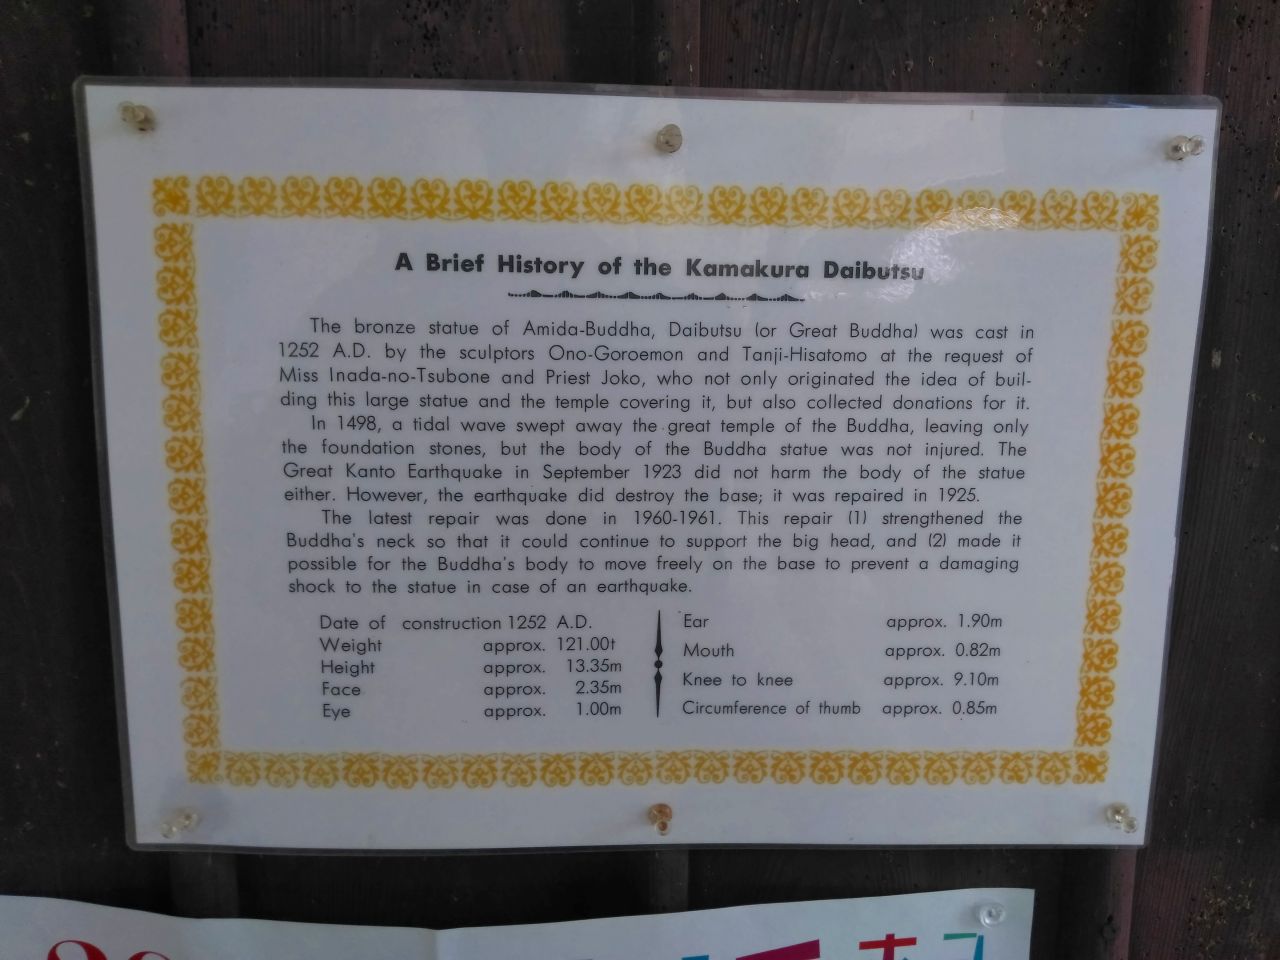 A Brief History of the Kamakura Daibutsu
The bronze statue of Amida-Buddha, Daibutsu (or Great Buddha) was cast in
1252 A.D. by the sculptors Ono-Goroemon and Tanji-Hisatomo at the request of
Miss Inada-no-Tsubone and Priest Joko, who not only originated the idea of buil-
ding this large statue and the temple covering it, but also collected donations for it.
In 1498, a tidal wave swept away the great temple of the Buddha, leaving only
the foundation stones, but the body of the Buddha statue was not injured. The
Great Kanto Earthquake in September 1923 did not harm the body of the statue
either. However, the earthquake did destroy the base; it was repaired in 1925.
The latest repair was done in 1960-1961. This repair (1) strengthened the
Buddha's neck so that it could continue to support the big head, and (2) made it
possible for the Buddha's body to move freely on the base to prevent a damaging
shock to the statue in case of an earthquake.
Date of construction 1252 A.D.
Weight approx. 121.00t
Height approx. 13.35m
Face approx. 2.35m
Eye approx. 1.00m
Ear approx. 1.90m
Mouth approx. 0.82m
Knee to knee approx. 9.10m
Circumference of thumb approx. 0.85m